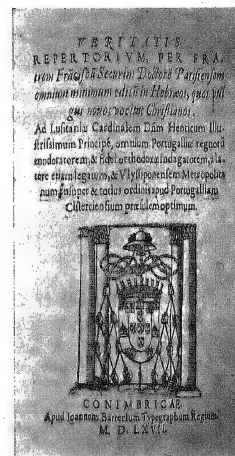 VERITATIS
REPERTORIVM, PER FRA
trem Frãciscũ Securim Doctorẽ Parisiensem
omnium minimum editũ in Hebræos, quos vul
gus nouos vocitat Christianos.
Ad Lusitaniæ Cardinalem Dñm Henricum Illu-
strissimum Principẽ, omnium Portugalliæ regnorũ
moderatorem, & fidei orthodoxæ indagatorem, à la-
tere etiam legatum, & Vlyssiponensem Metropolita
num, insuper & totius ordinis apud Portugalliam
Cisterciensium præsulem optimum.
CONIMBRICAE
Apud Ioannem Barrerium Typographum Regium.
M. D. LXVII.